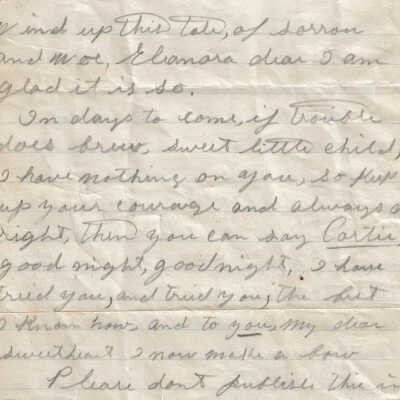 Wind up this tale, of sorrow
and woe, Elanora dear I am
glad it is so.
In days to come, if trouble
does brew, sweet little child,
I have nothing on you, so keep
up your courage and always
right, then you can say Cortie,
good night, good night, I have
tried you, and tried you, the best
I know how, and to you, my dear
sweetheart I now make a bow
Please don't publish this in